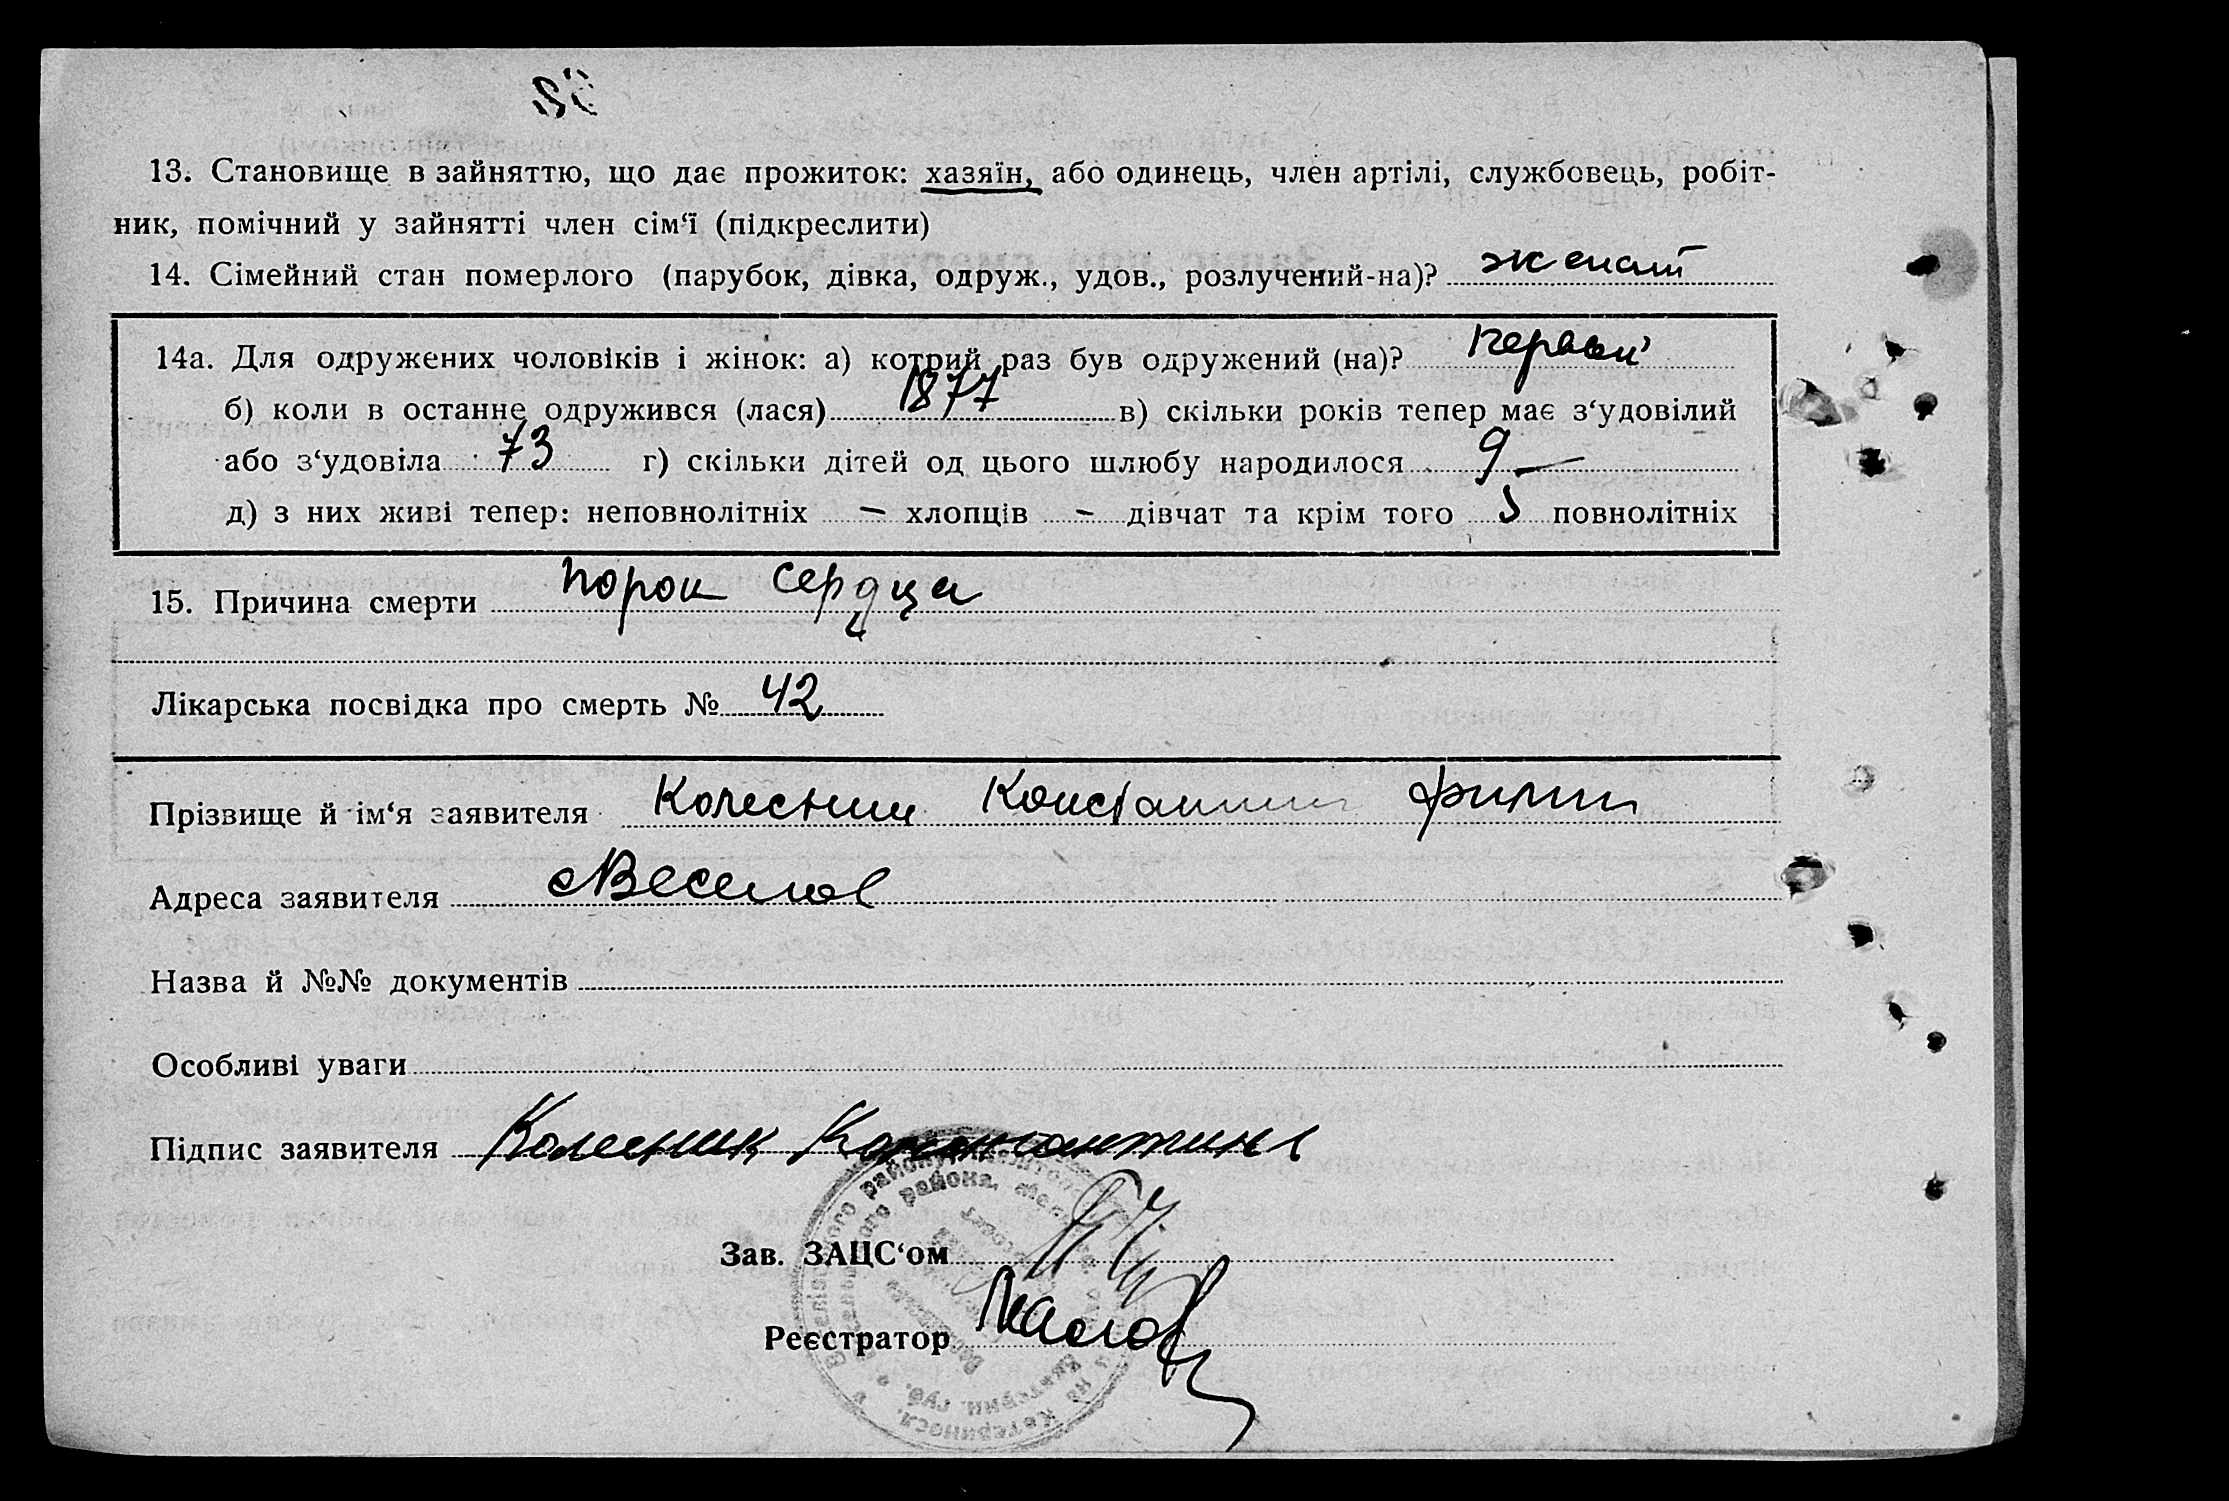 13. Становище в зайняттю, що дає прожиток: хазяїн, або одинець, член артілі, службовець, робіт-
ник, помічний у зайнятті член сім'ї (підкреслити)
14. Сімейний стан померлого (парубок, дівка, одруж., удов., розлучений-на)? женат
14а. Для одружених чоловіків і жінок: а) котрий раз був одружений (на)? первый
б) коли в останнє одружився (лася) 1877 в) скільки років тепер має з'удовілий
або з'удовіла 73 г) скільки дітей од цього шлюбу народилося 9 —
д) з них живі тепер: неповнолітніх — хлопців — дівчат та крім того 5 повнолітніх
15. Причина смерти порок сердца
Лікарська посвідка про смерть № 42
Прізвище й ім'я заявителя Колесник Константин Филип
Адреса заявителя с Веселое
Назва й №№ документів
Особливі уваги
Підпис заявителя Колесник Константин
Зав. ЗАЦС'ом
Реєстратор